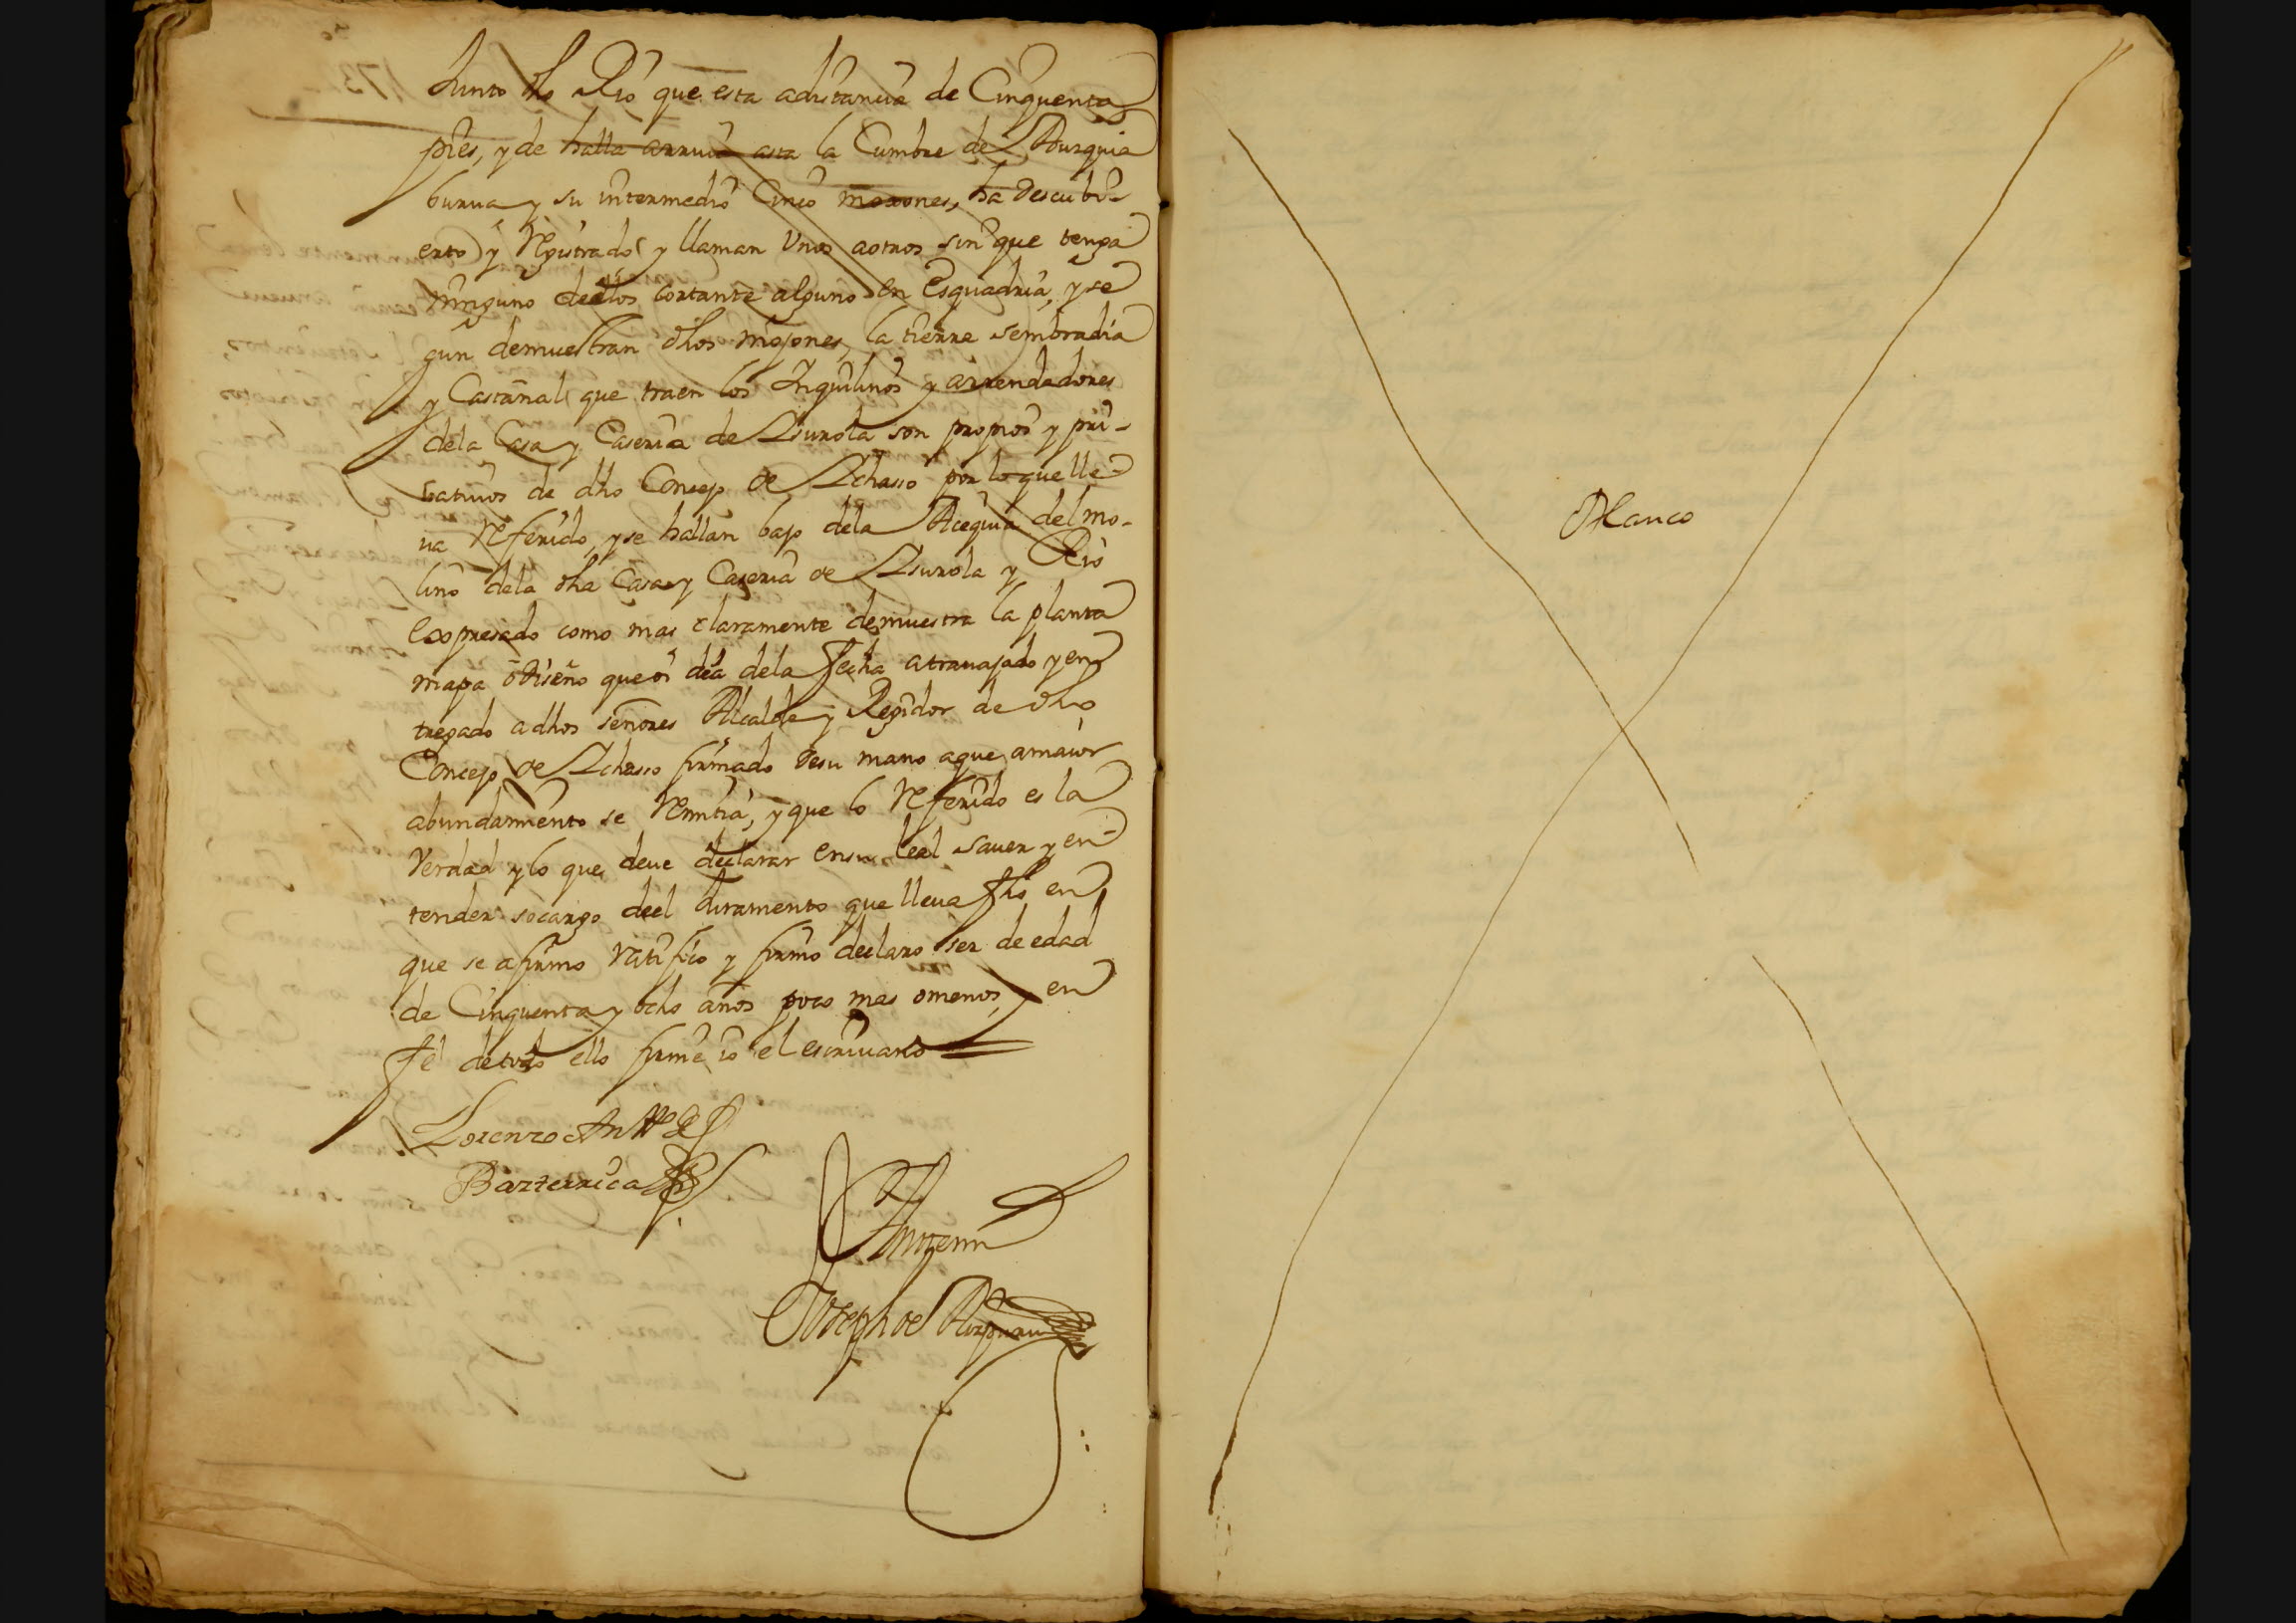 Junto dho Rio que esta adistancia de Cinquenta
pies, y de halla arriua asta la Cumbre de Aurquia
burua y su intermedio Cinco moxones, ha descubi-
erto y Rexistrado y llaman Unos aotros sin que tenga
ninguno deellos cortante alguno en Esquadria, y se
gun demuestran dhos mojones, la tierra sembradia
y Castañal que traen los Inquilinos y arrendadores
dela Casa y Caseria de Lizurola son propios y pri-
batiuos de dho Concejo de Lchasso por lo que lle-
ua Referido, y se hallan bajo dela Acequia del mo-
lino dela dha Casa y Caseria de Lizurola y Rio
Expresado como mas claramente demuestra la planta
mapa ò diseño que oi dia dela Fecha a trauajado y en
tregado a dhos señores Alcalde y Regidor de dho
Concejo de Lchasso firmado desu mano aque amaior
abundamiento se Remitia, y que lo Referido es la
Verdad y lo que deue declarar ensu leal sauer y en-
tender socargo deel Juramento que lleua fho en
que se afirmo ratifico y firmo declaro ser de edad
de Cinquenta y ocho años poco mas omenos, y en
fe detodo ello firme io el escriuano
Lorenzo Antt.º de
Barzerrica
Antemi
Joseph de Aizpuru
Blanco